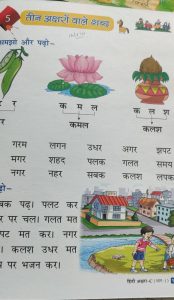 5 तीन अक्षरों वाले शब्द
समझो और पढ़ो–
क म ल
क ल श
कमल
कलश
गरम लगन उधर अगर झपट
मगर शहद पलक गलत समय
नगर नहर सबक कलश
ढ़ो–
बक पढ़। पलट कर
र पर चल। गलत मत
पट मत कर। नगर
। कलश उधर मत
य पर भजन कर।